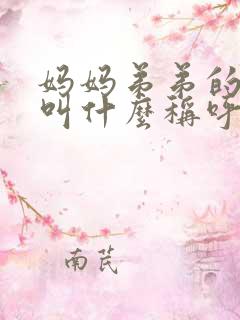 妈妈弟弟的
叫什麼稱呼
南芪